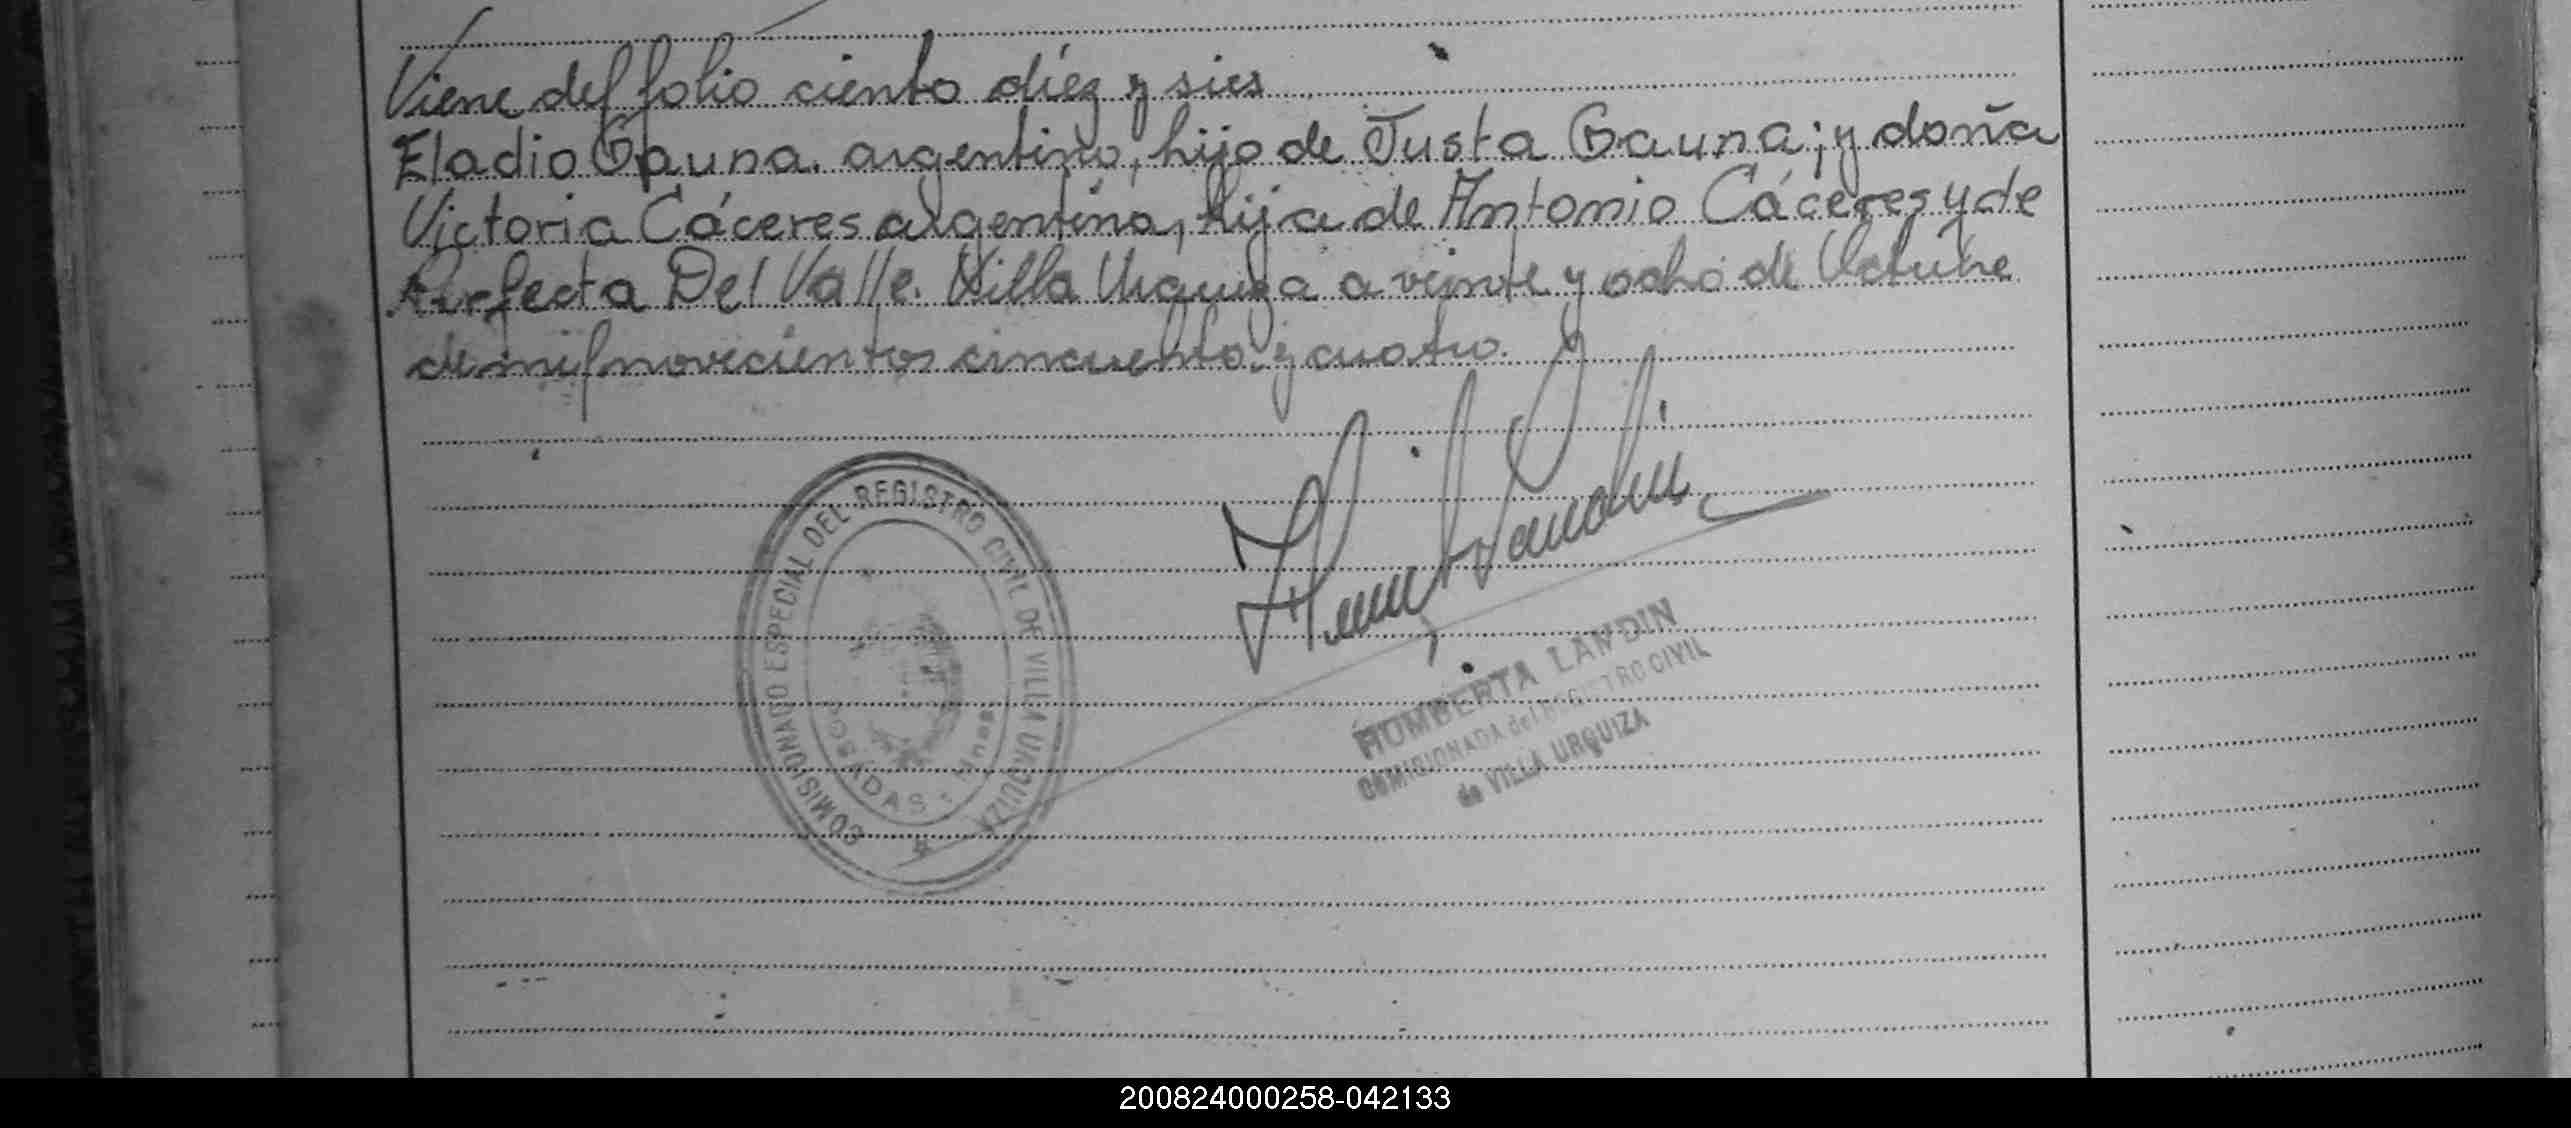 Viene del folio ciento diez y sies
Eladio Gauna. argentino, hijo de Justa Gauna; y doña
Victoria Cáceres argentina, hija de Antonio Cáceres y de
Perfecta Del Valle. Villa Urquiza a veinte y ocho de Octubre
de mil novecientos cincuenta y cuatro.
COMISIONADO ESPECIAL DEL REGISTRO CIVIL DE VILLA URQUIZA
POSADAS - Mnes
HOMBERTA LANDIN
COMISIONADA del REGISTRO CIVIL
de VILLA URQUIZA
200824000258-042133